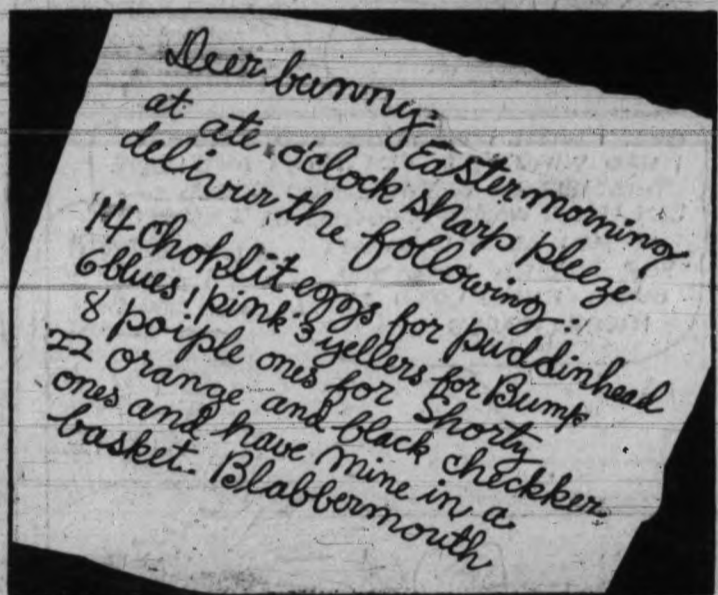 Deer bunny:
Easter morning
at ate o'clock sharp pleeze
delivur the following:
14 choklit eggs for puddinhead
6 blues 1 pink 3 yellers for Bump
8 poiple ones for Shorty
22 orange and black checkker
ones and have mine in a
basket. Blabbermouth